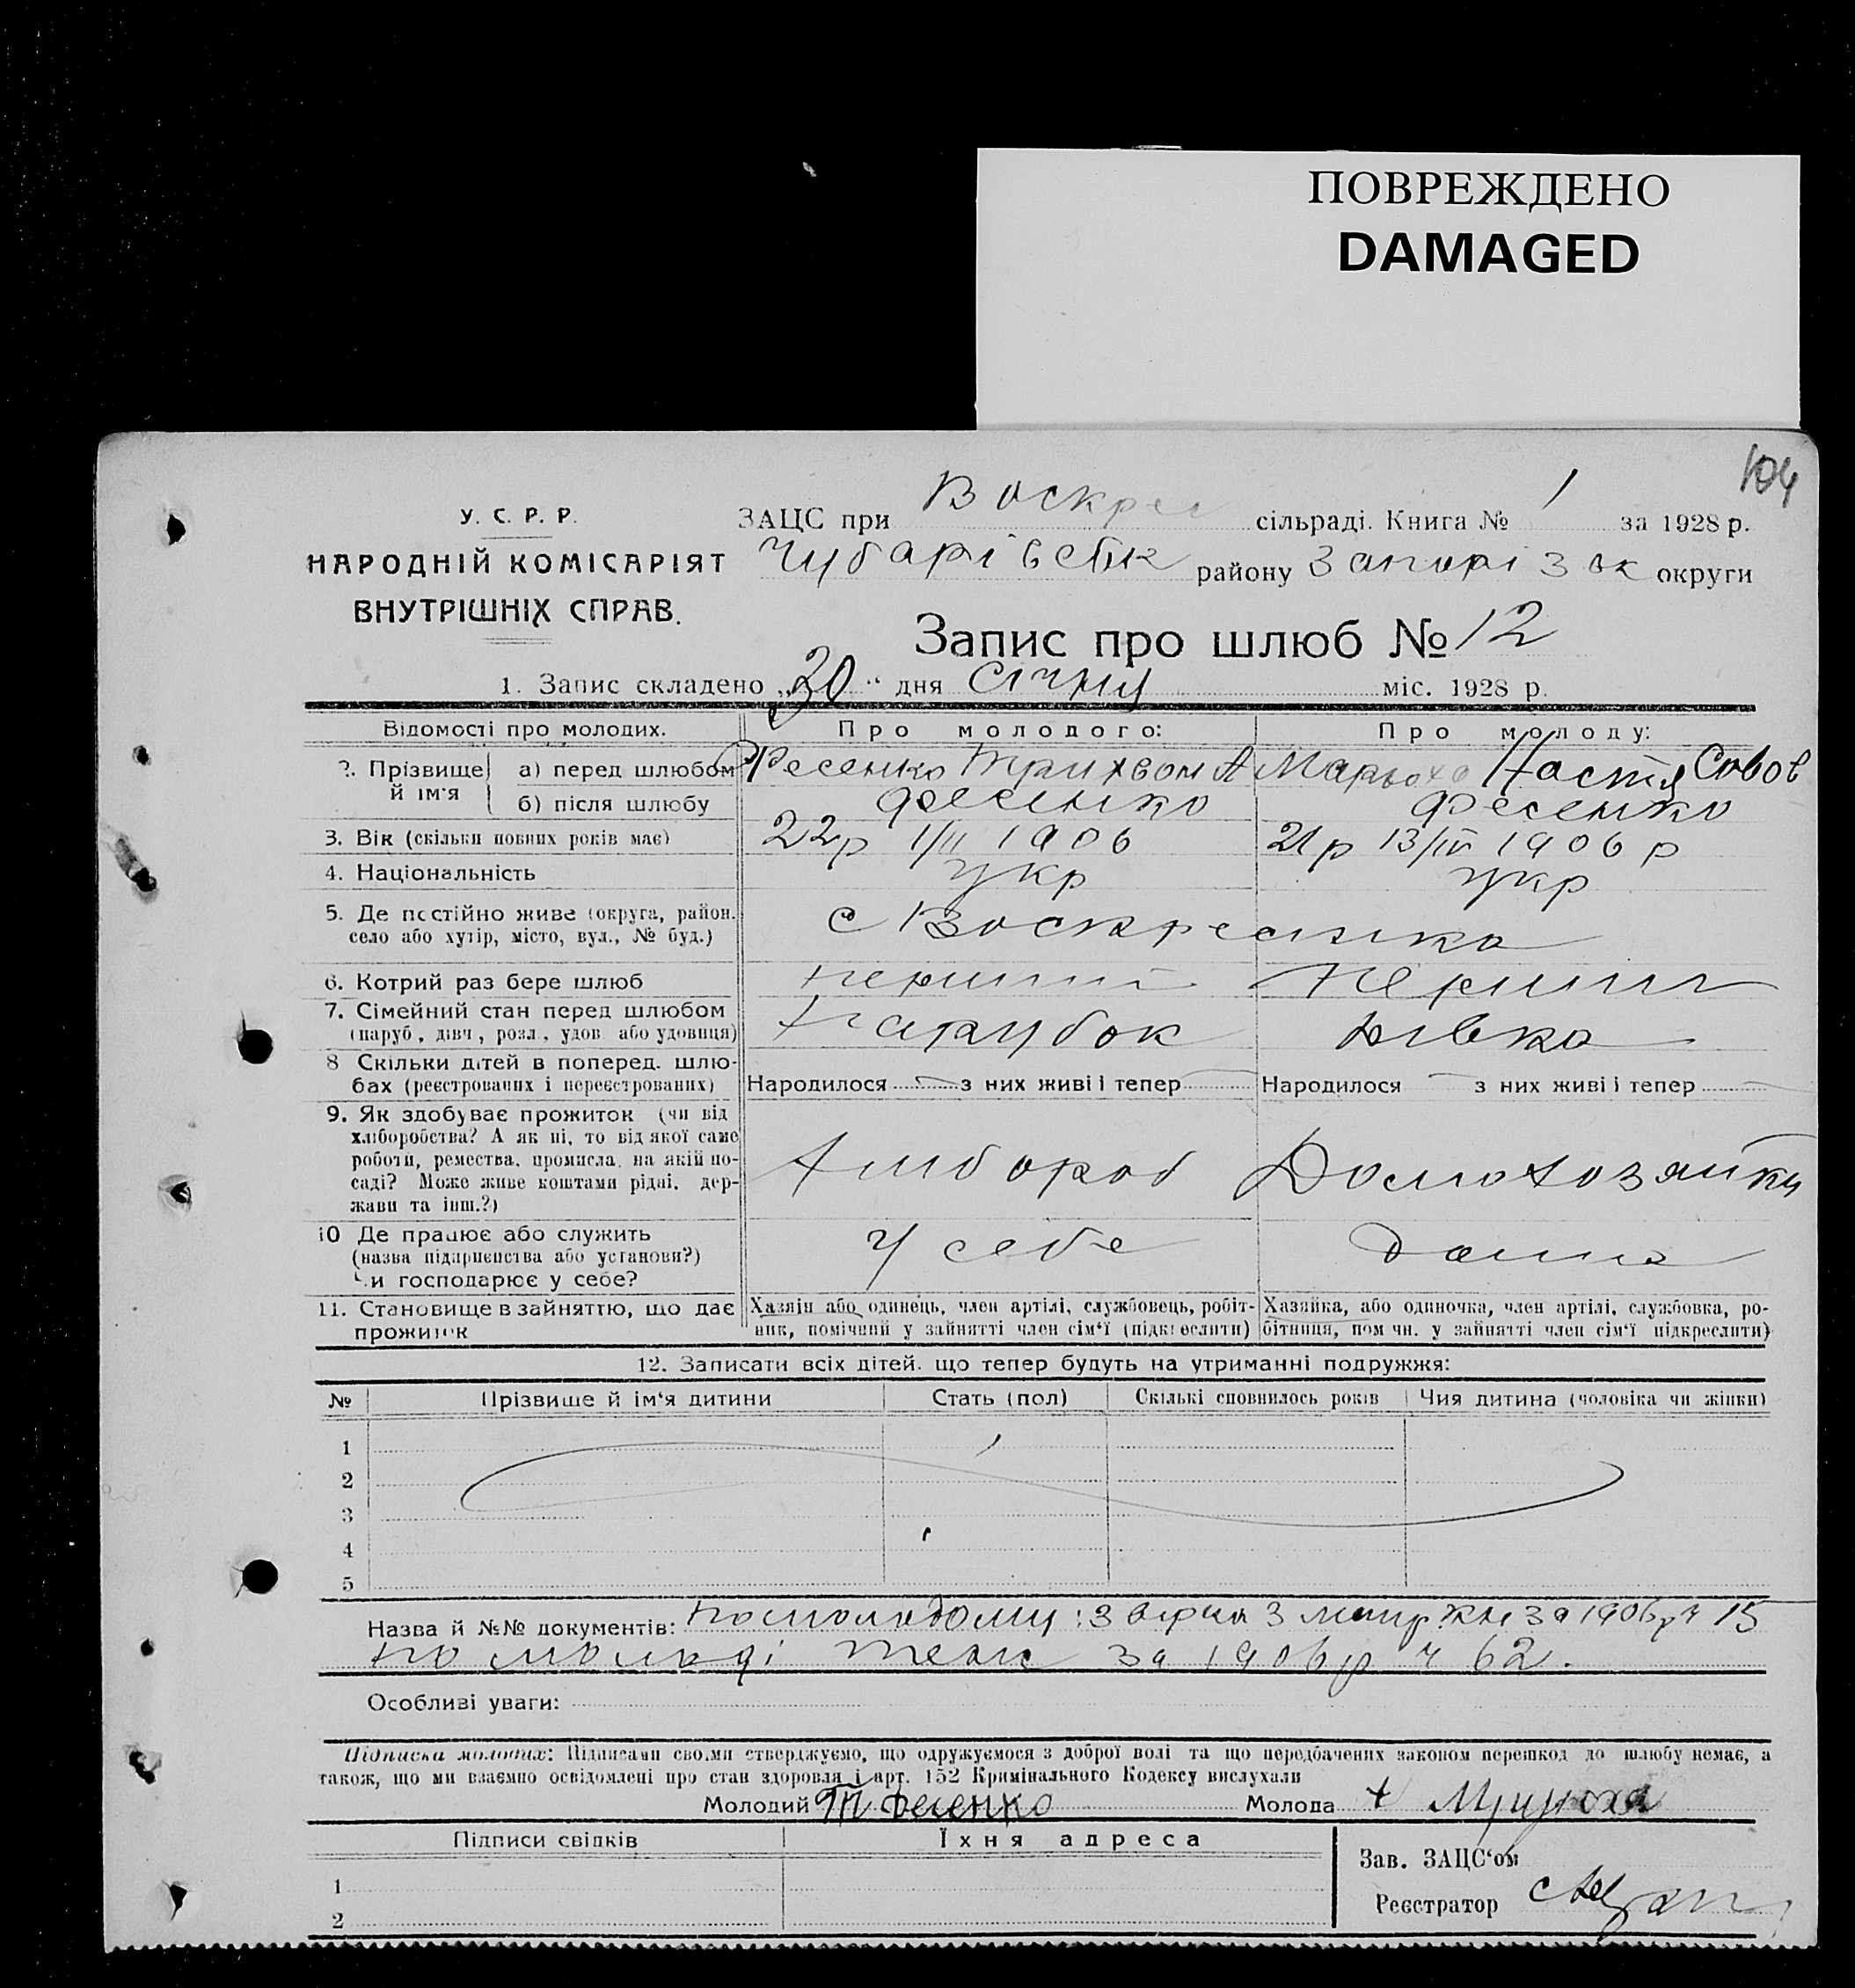 ПОВРЕЖДЕНО
DAMAGED
104
У. С. Р. Р.
НАРОДНІЙ КОМІСАРІЯТ
ВНУТРІШНІХ СПРАВ.
ЗАЦС при Воскрес сільраді. Книга № 1 за 1928 р.
Чубарівськ району Запоріз ок округи
Запис про шлюб № 12
1. Запис складено „30“ дня Січня міс. 1928 р.
Відомості про молодих. Про молодого: Про молоду:
2. Прізвище й ім'я а) перед шлюбом Фесенко Трихвон А Марюха Настя Совов
б) після шлюбу Фесенко Фесенко
3. Вік (скільки повних років має) 22р 1/II 1906 21р 13/IV 1906 р
4. Національність укр укр
5. Де постійно живе (округа, район.
село або хутір, місто, вул., № буд.) с Воскресенка
6. Котрий раз бере шлюб перший перший
7. Сімейний стан перед шлюбом
(паруб, дівч, розл., удов. або удовиця) парубок дівка
8 Скільки дітей в поперед. шлю-
бах (реєстрованих і нереєстрованих) Народилося — з них живі і тепер Народилося — з них живі і тепер
9. Як здобуває прожиток (чи від
хліборобства? А як ні, то від якої саме
роботи, ремества, промисла, на якій по-
саді? Може живе коштами рідні, дер-
жави та інш.?) Хлібороб Домохозяйка
10 Де працює або служить
(назва підприємства або установи?)
Чи господарює у себе? У себе дома
11. Становище в зайняттю, що дає
прожиток
Хазяін або одинець, член артілі, службовець, робіт-
ник, помічний у зайнятті член сім'ї (підкреслити)
Хазяйка, або одиночка, член артілі, службовка, ро-
бітниця, пом чн. у зайнятті член сім'ї підкреслити)
12. Записати всіх дітей, що тепер будуть на утриманні подружжя:
№ Прізвище й ім'я дитини Стать (пол) Скількі сповнилось років Чия дитина (чоловіка чи жінки)
1
2
3
4
5
Назва й №№ документів: по молодому: з метр. за 1906р ч 15
по молоді теж за 1906р ч 62.
Особливі уваги:
Підписка молодих: Підписами своїми стверджуємо, що одружуємося з доброї волі та що передбачених законом перешкод до шлюбу немає, а
також, що ми взаємно освідомлені про стан здоровля і арт. 152 Кримінального Кодексу вислухали
Молодий Т Фесенко Молода +
Підписи свідків Їхня адреса
Зав. ЗАЦС'ом
1
Реєстратор
2